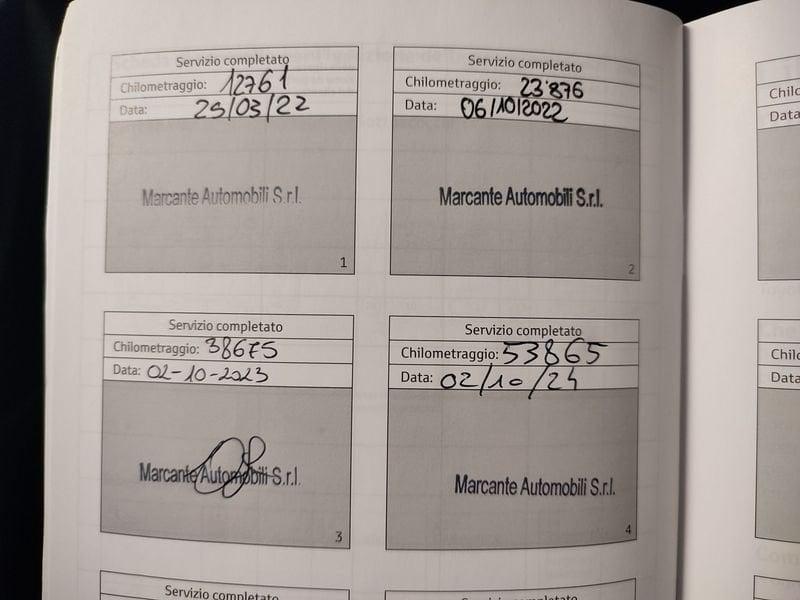 Servizio completato
Chilometraggio: 12761
Data: 29/03/22
Marcante Automobili S.r.l.
1
Servizio completato
Chilometraggio: 23'876
Data: 06/10/2022
Marcante Automobili S.r.l.
2
Servizio completato
Chilometraggio: 38675
Data: 02-10-2023
Marcante Automobili S.r.l.
3
Servizio completato
Chilometraggio: 53865
Data: 02/10/24
Marcante Automobili S.r.l.
4
Servizio completato
Servizio completato
Chilo
Data
Chilo
Data